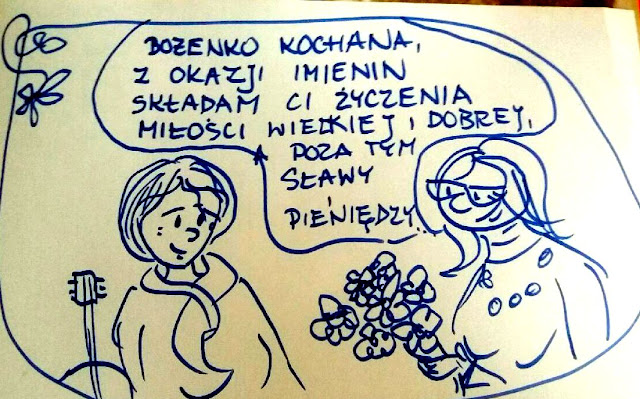 BOŻENKO KOCHANA,
Z OKAZJI IMIENIN
SKŁADAM CI ŻYCZENIA
MIŁOŚCI WIELKIEJ I DOBREJ,
A POZA TYM
SŁAWY
I
PIENIĘDZY...